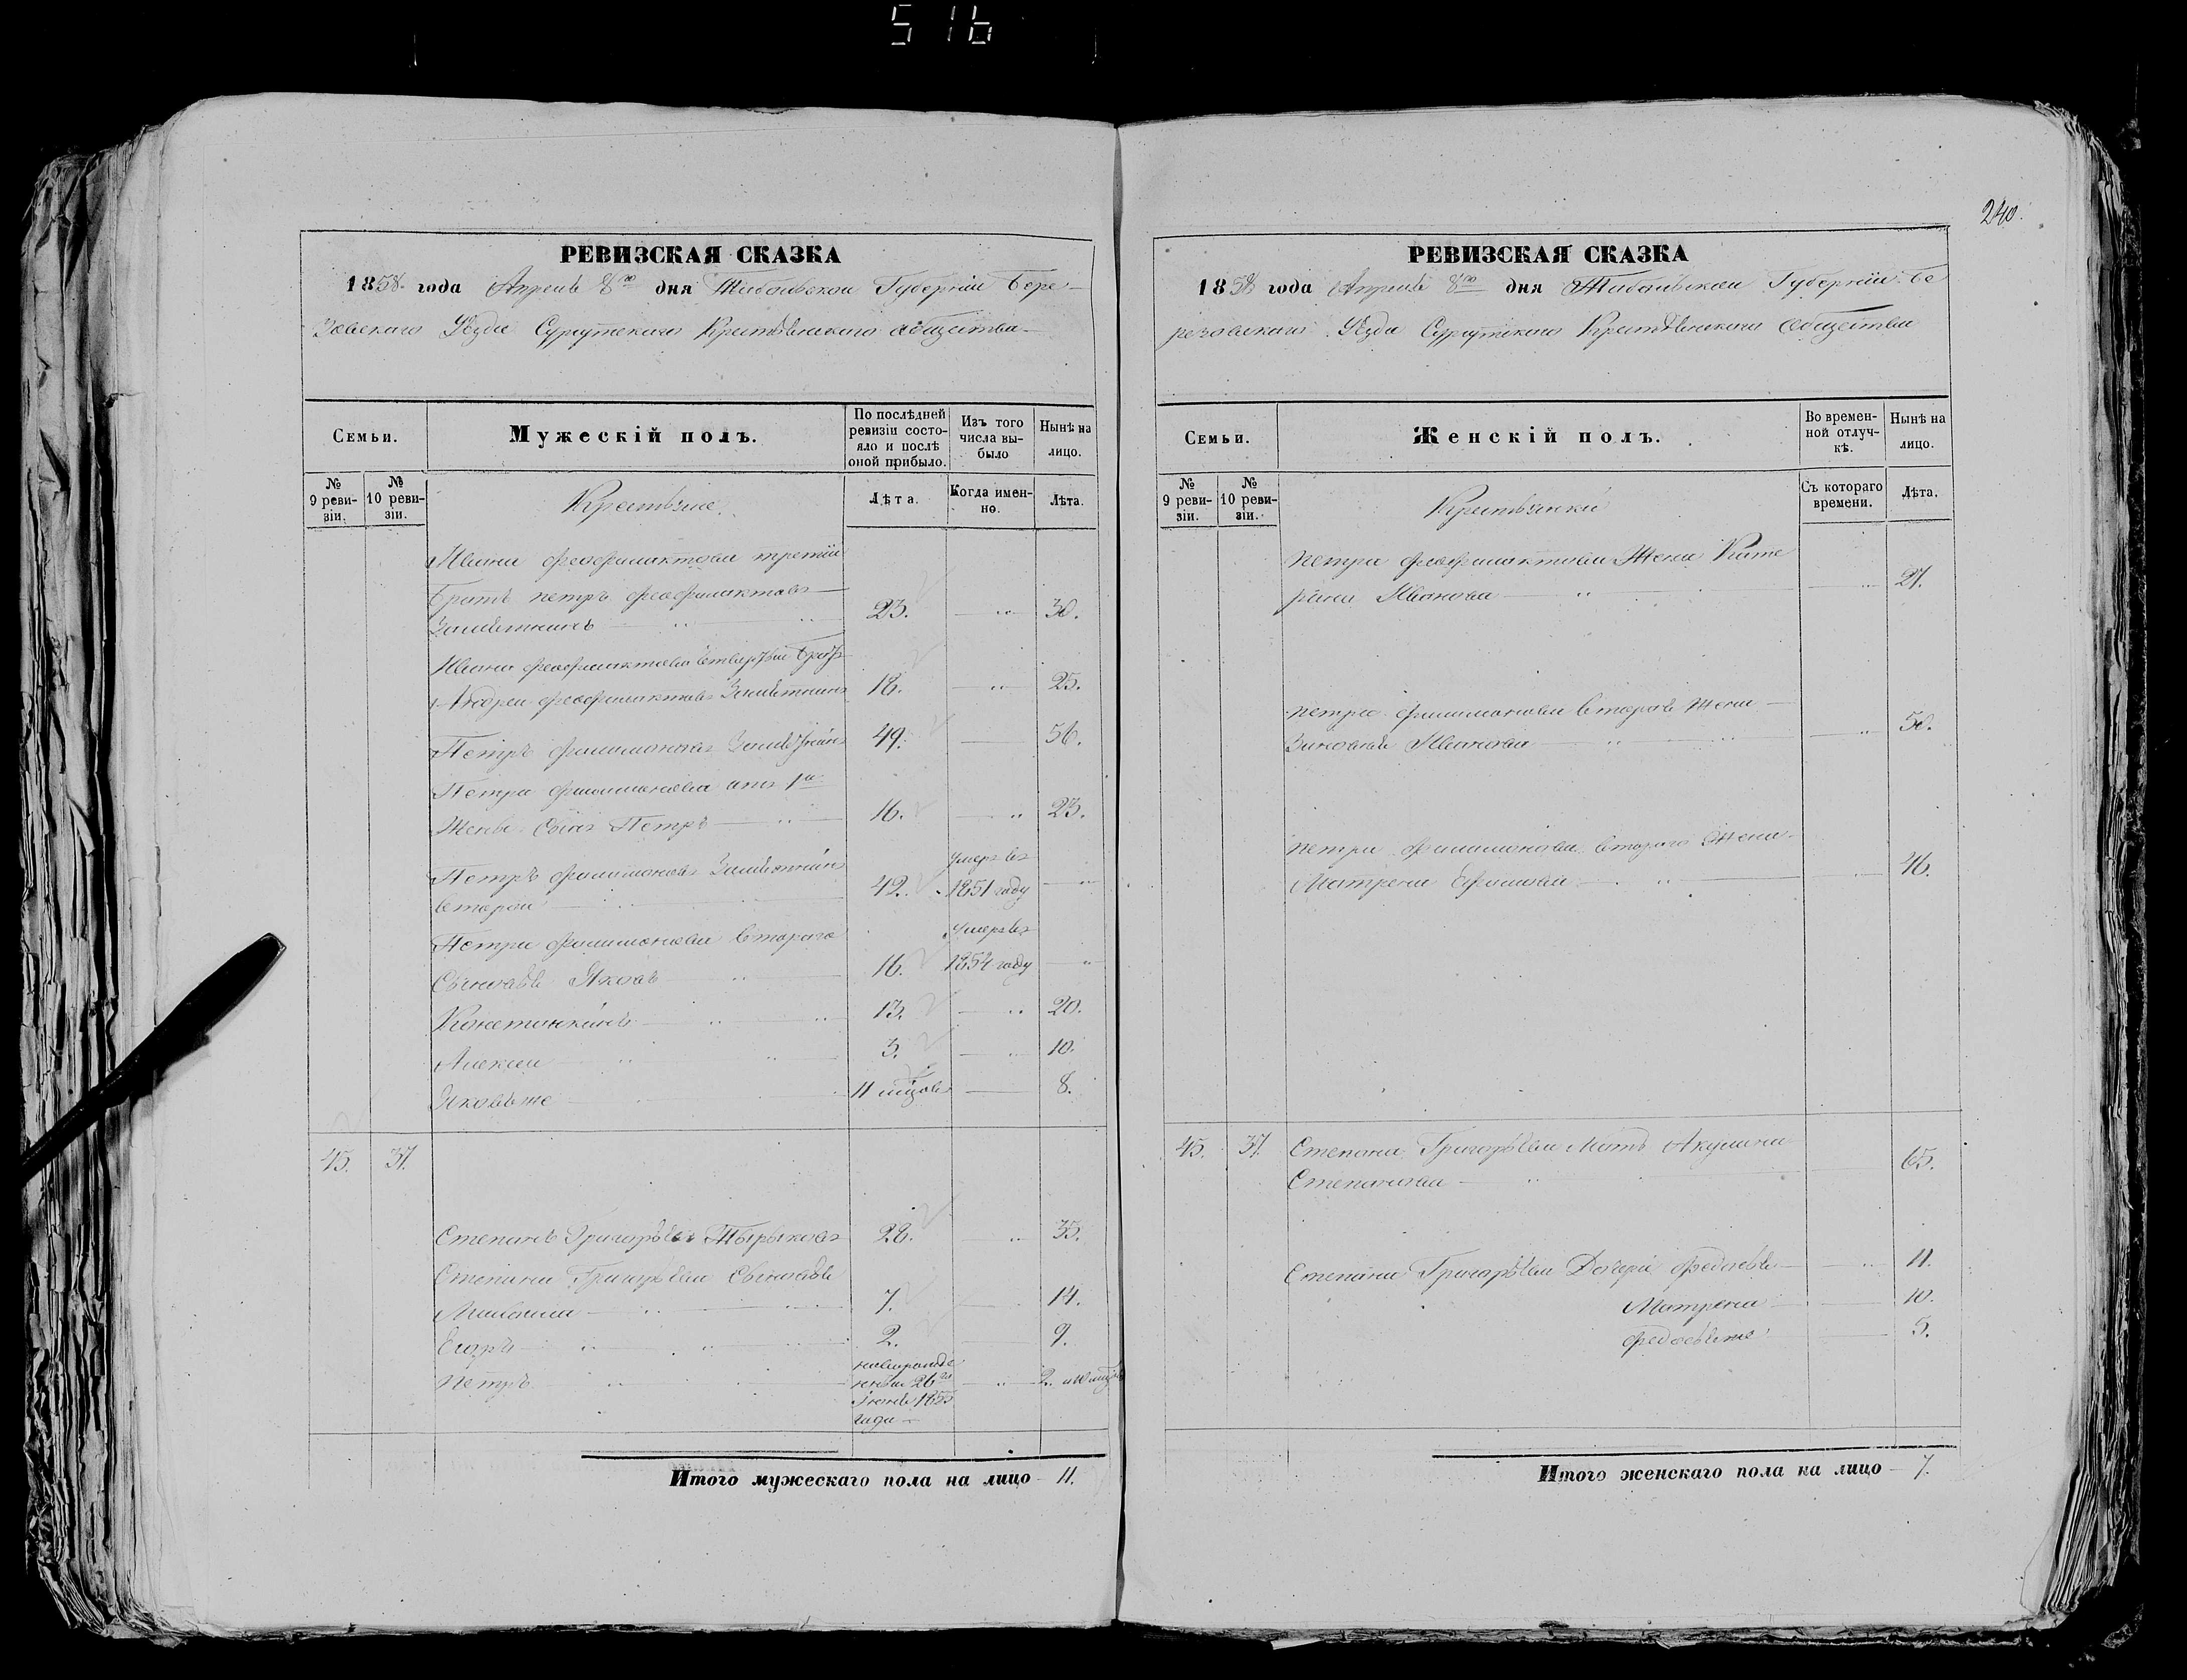 516
240.
РЕВИЗСКАЯ СКАЗКА
1858 года Апреля 8го дня Тобольской Губерніи Бере-
зовскаго Уѣзда Сургутскаго Крестьянскаго общества
Семьи.
Мужескій полъ.
По послѣдней ревизіи состояло и послѣ оной прибыло.
Изъ того числа выбыло
Нынѣ на лицо.
№ 9 ревизіи.
№ 10 ревизіи.
Крестьяне.
Лѣта.
Когда именно.
Лѣта.
Ивана Феофилактова третій
Братъ Петръ Феофилактовъ
23. 30.
Ивана Феофилактова четвертый братъ
Андрей Феофилактовъ
18. 25.
Петръ Филимоновъ
49. 56.
Петра Филимонова отъ 1й
Жены Сынъ Петръ 16. 23.
Петръ Филимоновъ
второй 42. умеръ въ 1851 году
Петра Филимонова втораго
Сыновья Яковъ 16. умеръ въ 1854 году
Константинъ 13. 20.
Алексей 3. 10.
Яковъ же 11 мѣсцовъ 8.
45. 37.
Степанъ Григорьевъ Тырыковъ 28. 35.
Степана Григорьева Сыновья
7. 14.
Егоръ 2. 9.
Петръ новорожденный 26го Іюня 1855 года 2. и 10 мѣсц
Итого мужескаго пола на лицо 11.
РЕВИЗСКАЯ СКАЗКА
1858 года Апреля 8го дня Тобольской Губерніи Бе
резовскаго Уѣзда Сургутскаго Крестьянскаго Общества
Семьи.
Женскій полъ.
Во временной отлучкѣ.
Нынѣ на лицо.
№ 9 ревизіи.
№ 10 ревизіи.
Крестьянки
Съ котораго времени.
Лѣта.
Петра Феофилактова Жена Кате
рина Иванова 27.
Петра Филимонова вторая Жена
Иванова 50.
Петра Филимонова втораго Жена
Матрена Ефимова 46.
45. 37. Степана Григорьева Мать Акулина
Степанова 65.
Степана Григорьева Дочери Федосья 11.
Матрена 10.
Федосья же 5.
Итого женскаго пола на лицо 7.